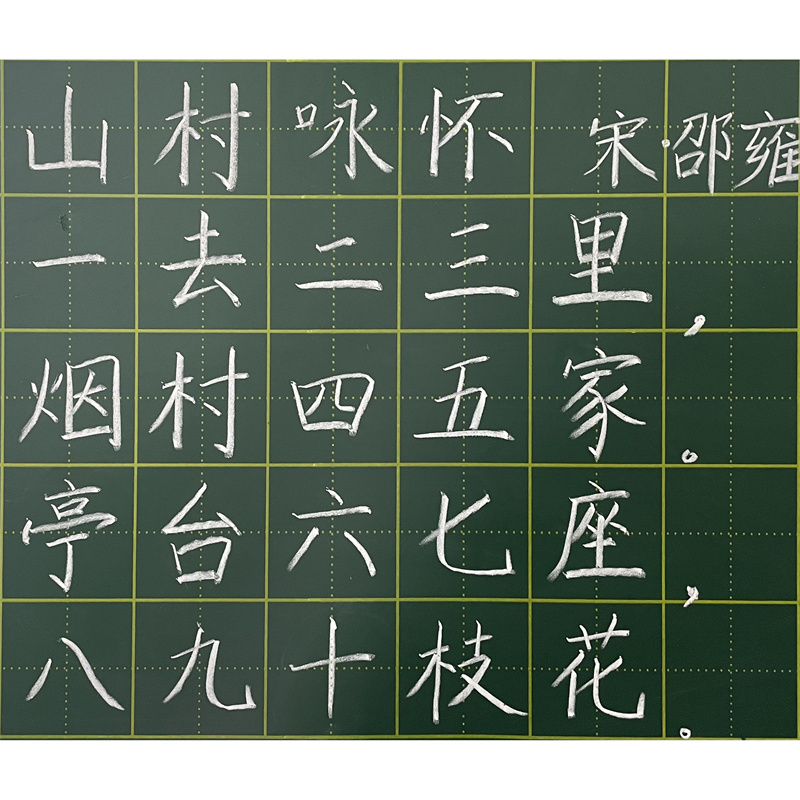 山村咏怀 宋·邵雍
一去二三里，
烟村四五家。
亭台六七座，
八九十枝花。